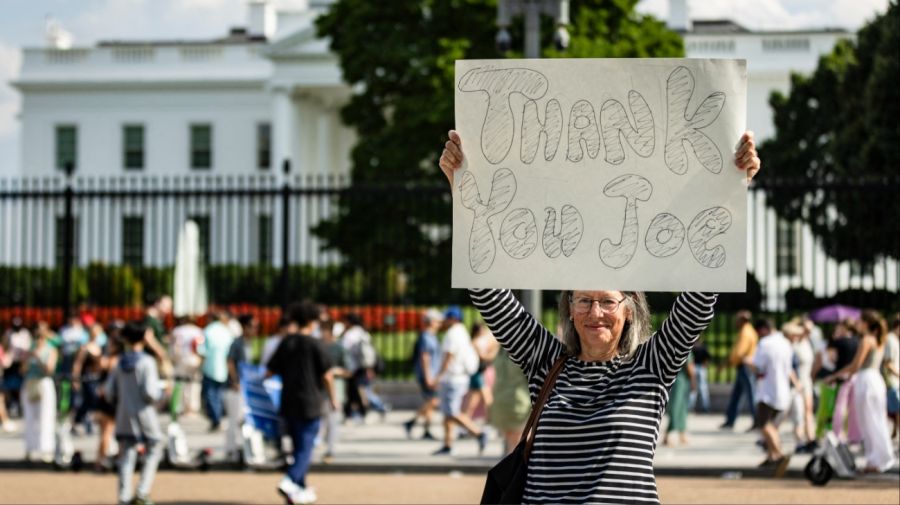 THANK
YOU JOE